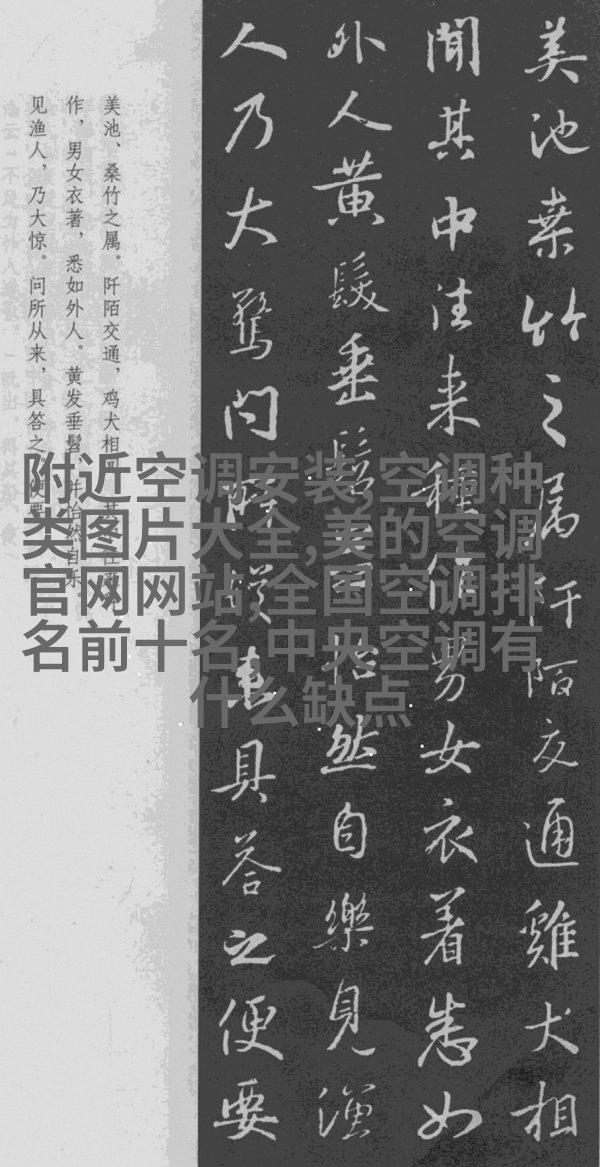 美池桒竹之属阡陌交通雞犬相
聞其中往来種作男女衣着悉如
外人黄髮垂髫並怡然自樂見漁
人乃大驚問所從来具答之便要
美池、桑竹之属。阡陌交通，鸡犬相闻。其中往来
作，男女衣著，悉如外人。黄发垂髫，并怡然自乐。
见渔人，乃大惊。问所从来，具答之。便要
附近空调安装,空调种
类图片大全,美的空调
官网网站,全国空调排
名前十名,中央空调有
什么缺点